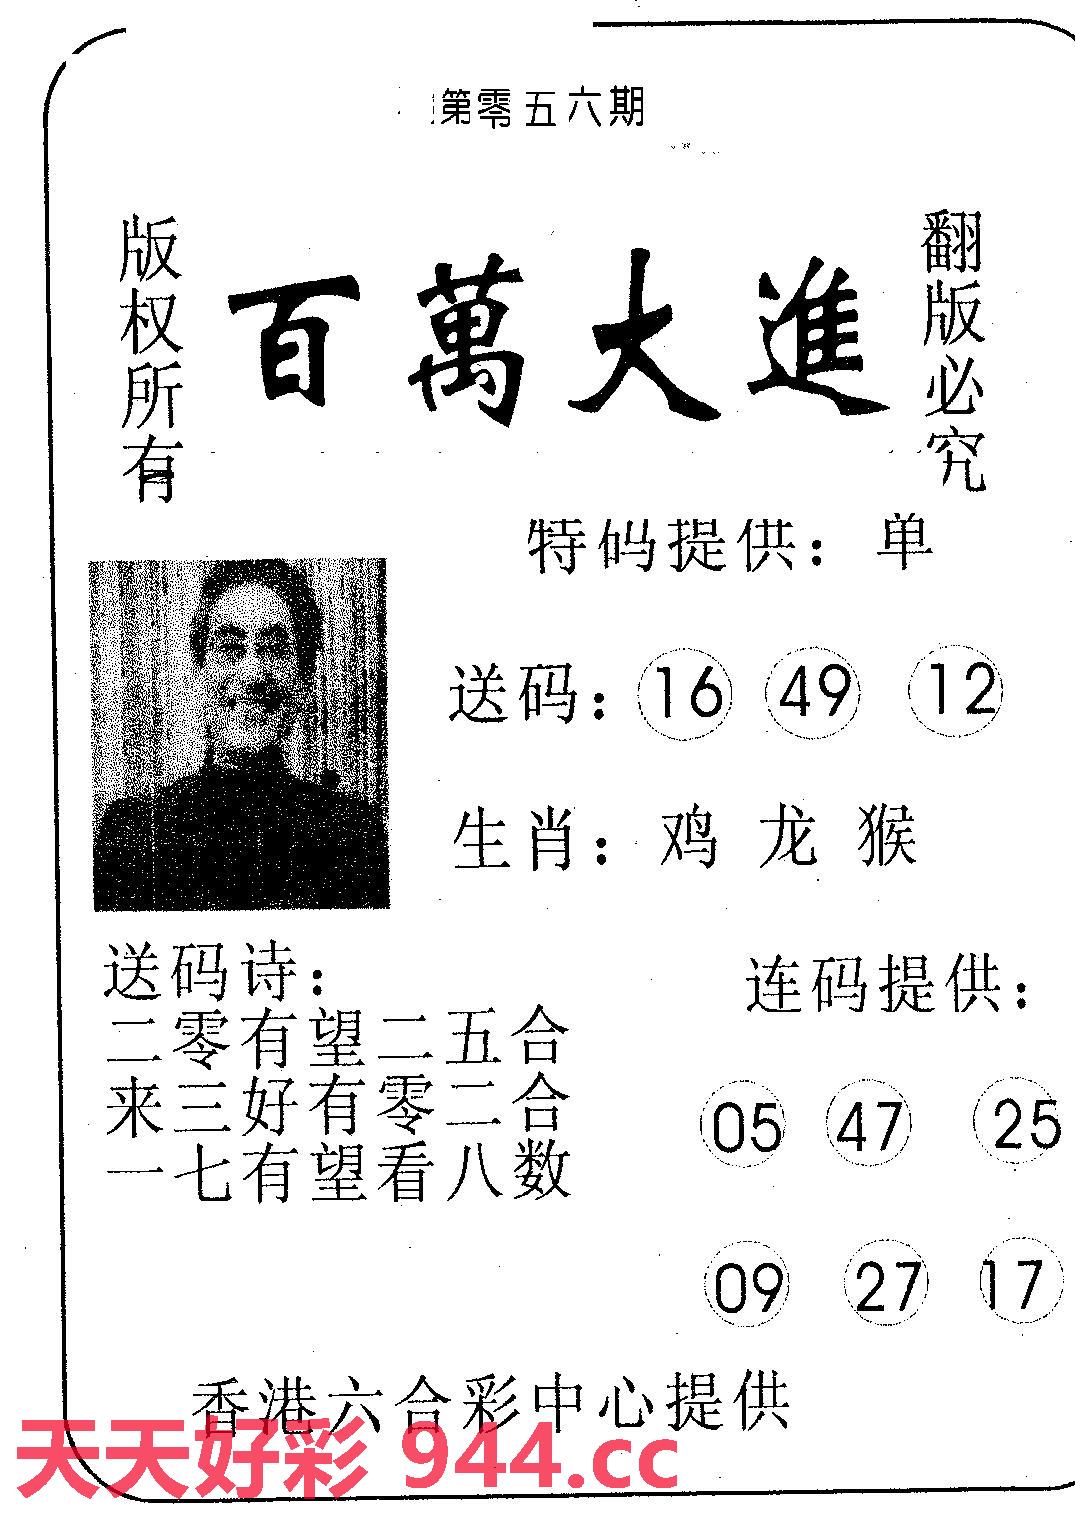 第零五六期
版权所有
百萬大進
翻版必究
特码提供：单
送码：16 49 12
生肖：鸡 龙 猴
送码诗：
二零有望二五合
来三好有零二合
一七有望看八数
连码提供：
05 47 25
09 27 17
香港六合彩中心提供
天天好彩 944.cc